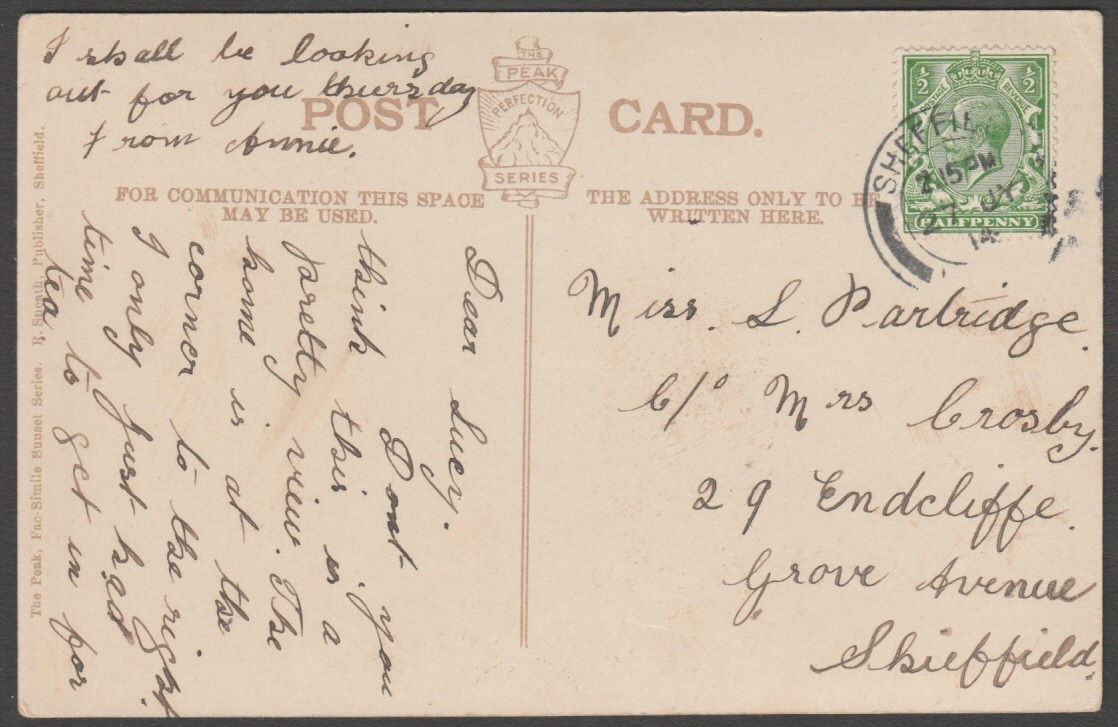 I shall be looking
out for you thursday
From Annie.
THE
PEAK
PERFECTION
SERIES
POST CARD.
FOR COMMUNICATION THIS SPACE
MAY BE USED.
THE ADDRESS ONLY TO BE
WRITTEN HERE.
Dear Lucy.
Dont you
think this is a
pretty view. The
home is at the
corner to the right
I only just had
time to get in for
tea.
½ ½
POSTAGE REVENUE
HALFPENNY
SHEFFIEL
2.15 PM
27 JY
14
Miss. L. Partridge.
C/o Mrs Crosby.
29 Endcliffe.
Grove Avenue
Sheffield.
The Peak, Fac-Simile Sunset Series. R. Sneath, Publisher, Sheffield.